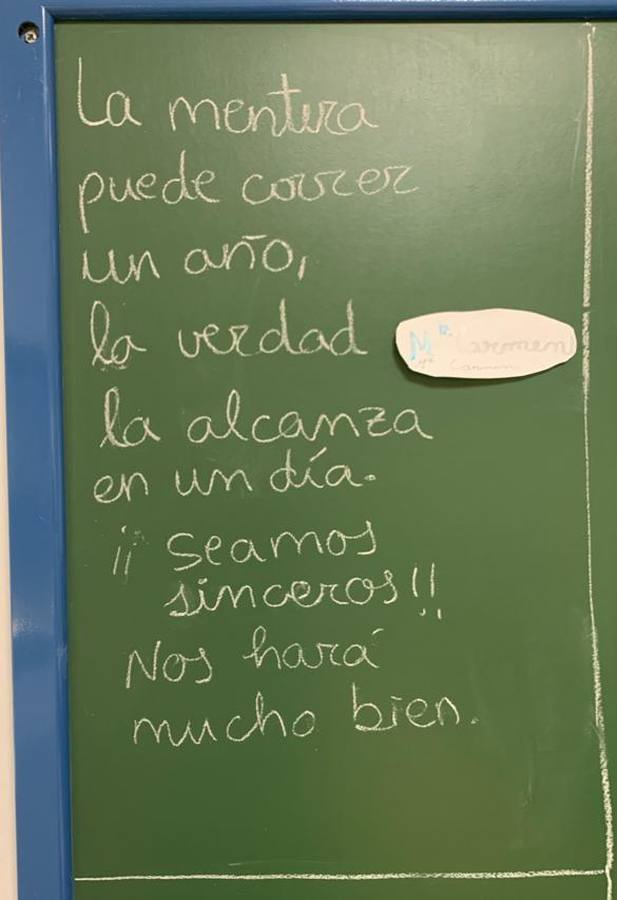 La mentira
puede correr
un año,
la verdad
la alcanza
en un día.
¡¡ seamos
sinceros!!
Nos hará
mucho bien.
Mª Carmen
Carmen